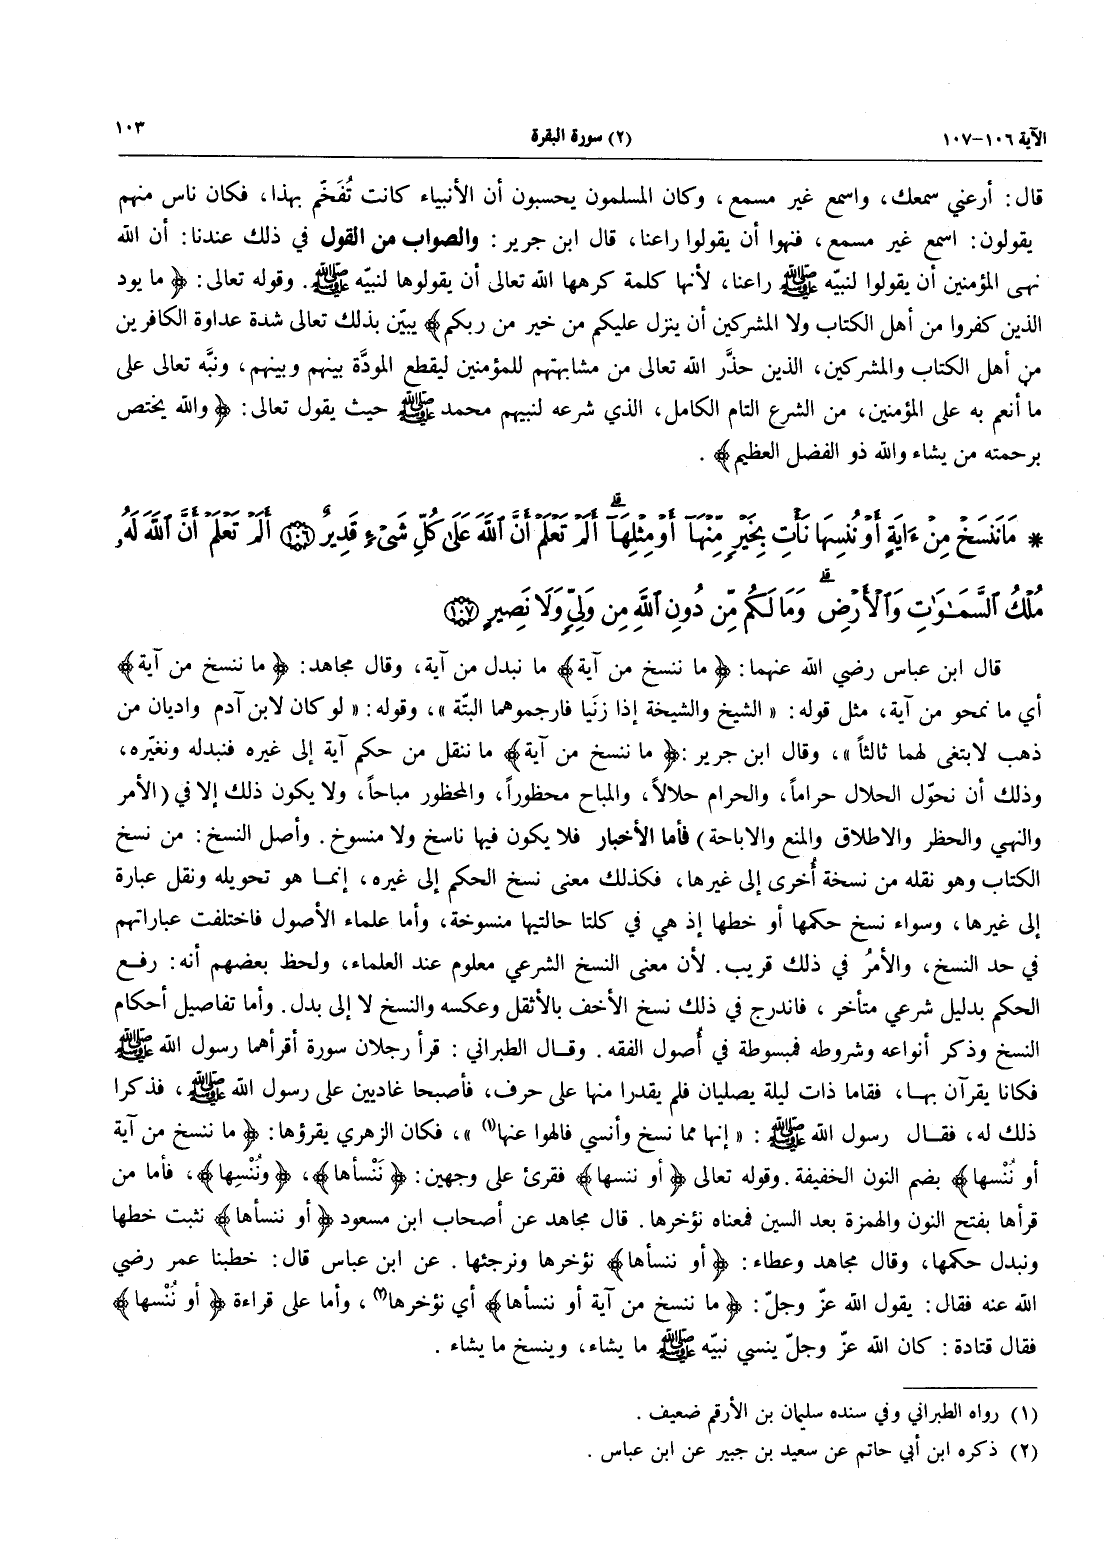 الآية ١٠٦-١٠٧ (٢) سورة البقرة ١٠٣
قال: أرعني سمعك، واسمع غير مسمع، وكان المسلمون يحسبون أن الأنبياء كانت تُفَخّم بهذا، فكان ناس منهم
يقولون: اسمع غير مسمع، فنهوا أن يقولوا راعنا، قال ابن جرير: والصواب من القول في ذلك عندنا: أن الله
نهى المؤمنين أن يقولوا لنبيّه ﷺ راعنا، لأنها كلمة كرهها الله تعالى أن يقولوها لنبيّه ﷺ. وقوله تعالى: ﴿ ما يود
الذين كفروا من أهل الكتاب ولا المشركين أن ينزل عليكم من خير من ربكم﴾ يبيّن بذلك تعالى شدة عداوة الكافرين
من أهل الكتاب والمشركين، الذين حذَّر الله تعالى من مشابهتهم للمؤمنين ليقطع المودَّة بينهم وبينهم، ونبَّه تعالى على
ما أنعم به على المؤمنين، من الشرع التام الكامل، الذي شرعه لنبيهم محمد ﷺ حيث يقول تعالى: ﴿ والله يختص
برحمته من يشاء والله ذو الفضل العظيم﴾ .
* مَا نَنسَخْ مِنْ ءَايَةٍ أَوْ نُنسِهَا نَأْتِ بِخَيْرٍ مِّنْهَآ أَوْ مِثْلِهَآ ۗ أَلَمْ تَعْلَمْ أَنَّ ٱللَّهَ عَلَىٰ كُلِّ شَىْءٍ قَدِيرٌ ﴿١٠٦﴾ أَلَمْ تَعْلَمْ أَنَّ ٱللَّهَ لَهُۥ
مُلْكُ ٱلسَّمَـٰوَٰتِ وَٱلْأَرْضِ ۗ وَمَا لَكُم مِّن دُونِ ٱللَّهِ مِن وَلِىٍّ وَلَا نَصِيرٍ ﴿١٠٧﴾
قال ابن عباس رضي الله عنهما: ﴿ ما ننسخ من آية﴾ ما نبدل من آية، وقال مجاهد: ﴿ ما ننسخ من آية﴾
أي ما نمحو من آية، مثل قوله: « الشيخ والشيخة إذا زنَيا فارجموهما البتّة »، وقوله: « لو كان لابن آدم واديان من
ذهب لابتغى لهما ثالثاً »، وقال ابن جرير :﴿ ما ننسخ من آية﴾ ما ننقل من حكم آية إلى غيره فنبدله ونغيّره،
وذلك أن نحوّل الحلال حراماً، والحرام حلالاً، والمباح محظوراً، والمحظور مباحاً، ولا يكون ذلك إلا في (الأمر
والنهي والحظر والاطلاق والمنع والاباحة) فأما الأخبار فلا يكون فيها ناسخ ولا منسوخ. وأصل النسخ: من نسخ
الكتاب وهو نقله من نسخة أُخرى إلى غيرها، فكذلك معنى نسخ الحكم إلى غيره، إنمـا هو تحويله ونقل عبارة
إلى غيرها، وسواء نسخ حكمها أو خطها إذ هي في كلتا حالتيها منسوخة، وأما علماء الأصول فاختلفت عباراتهم
في حد النسخ، والأمرُ في ذلك قريب. لأن معنى النسخ الشرعي معلوم عند العلماء، ولحظ بعضهم أنه: رفـع
الحكم بدليل شرعي متأخر ، فاندرج في ذلك نسخ الأخف بالأثقل وعكسه والنسخ لا إلى بدل. وأما تفاصيل أحكام
النسخ وذكر أنواعه وشروطه فمبسوطة في أُصول الفقه. وقـال الطبراني : قرأ رجلان سورة أقرأهما رسول الله ﷺ
فكانا يقرآن بهـا، فقاما ذات ليلة يصليان فلم يقدرا منها على حرف، فأصبحا غاديين على رسول الله ﷺ، فذكرا
ذلك له، فقـال رسول الله ﷺ : « إنها مما نسخ وأنسي فالهوا عنها(١) »، فكان الزهري يقرؤها: ﴿ ما ننسخ من آية
أو نُنْسها﴾ بضم النون الخفيفة. وقوله تعالى ﴿ أو ننسها﴾ فقرئ على وجهين: ﴿ نَنْسأها﴾، ﴿ ونُنْسِها﴾، فأما من
قرأها بفتح النون والهمزة بعد السين فمعناه نؤخرها. قال مجاهد عن أصحاب ابن مسعود ﴿ أو ننسأها﴾ نثبت خطها
ونبدل حكمها، وقال مجاهد وعطاء: ﴿ أو ننسأها﴾ نؤخرها ونرجئها. عن ابن عباس قال: خطبنا عمر رضي
الله عنه فقال: يقول الله عزّ وجلّ: ﴿ ما ننسخ من آية أو ننسأها﴾ أي نؤخرها(٢)، وأما على قراءة ﴿ أو نُنْسها﴾
فقال قتادة: كان الله عزّ وجلّ ينسي نبيّه ﷺ ما يشاء، وينسخ ما يشاء .
(١) رواه الطبراني وفي سنده سليمان بن الأرقم ضعيف .
(٢) ذكره ابن أبي حاتم عن سعيد بن جبير عن ابن عباس .